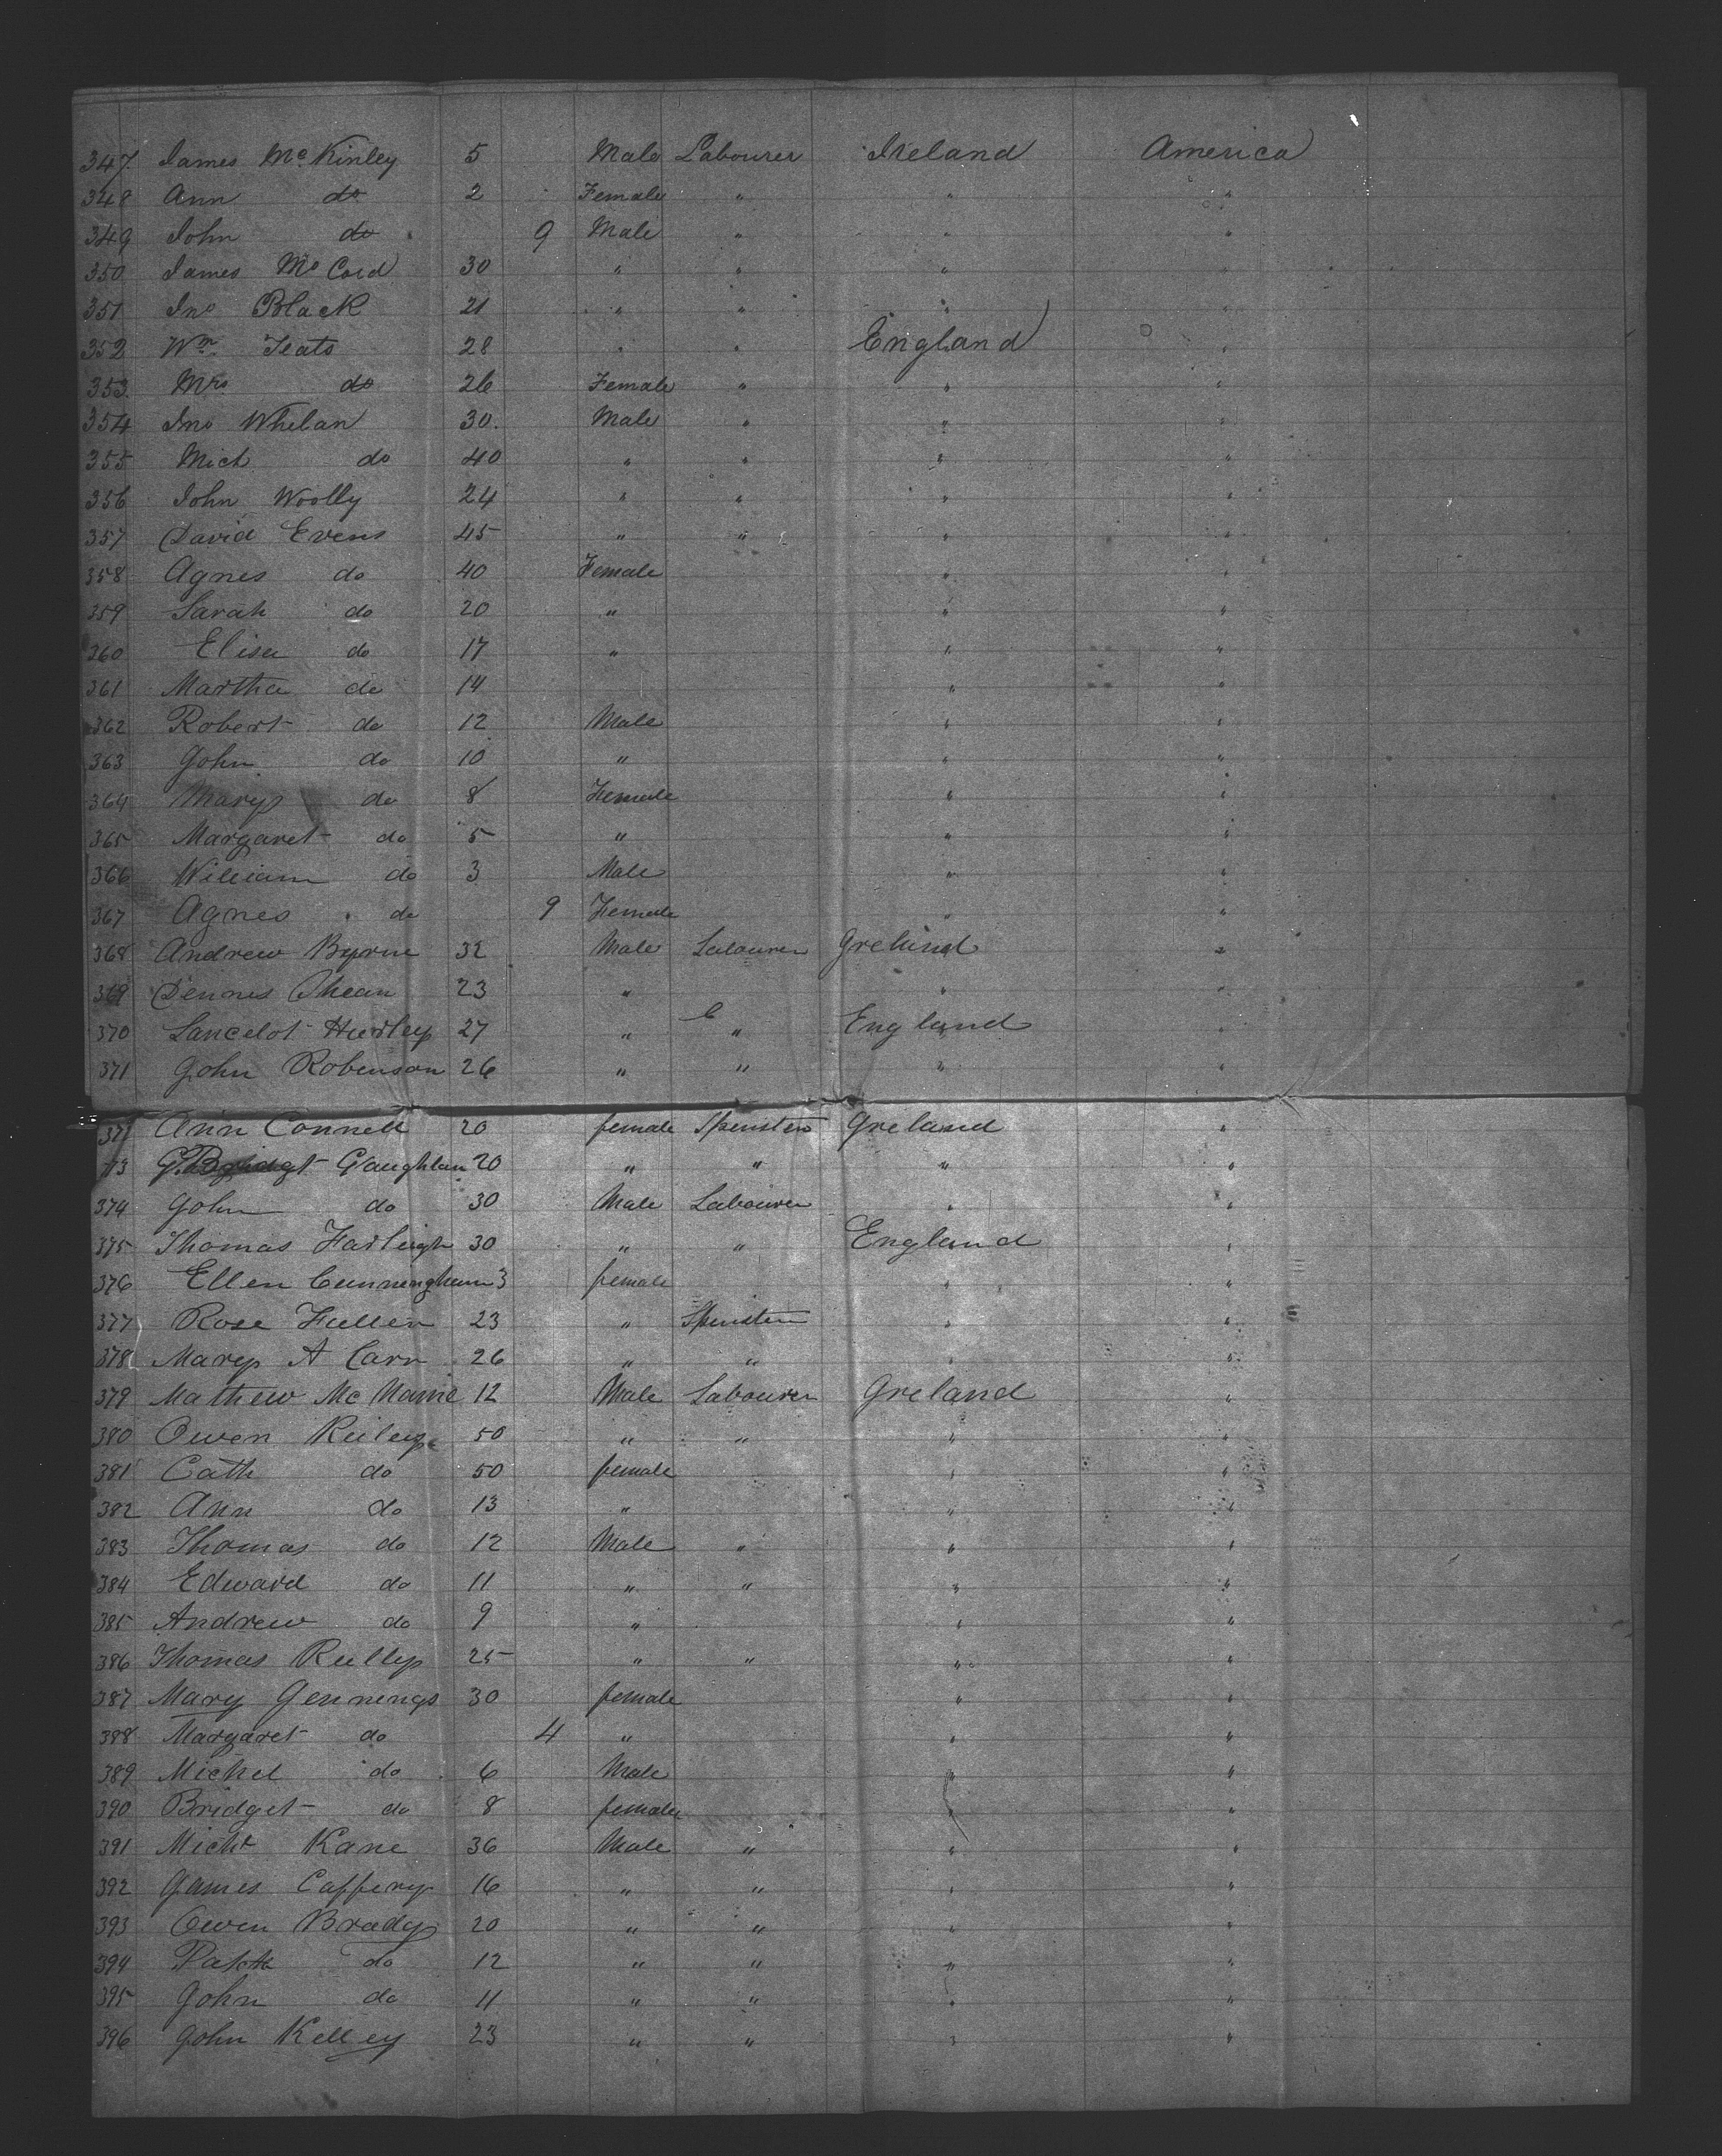 347. James McKinley 5 Male Labourer Ireland America
348 Ann do 2 Female " " "
349 John do 9 Male " " "
350 James McCord 30 " " " "
351 Jno Black 21 " " " "
352 Wm Teats 28 " " England "
353. Mrs do 26 Female " " "
354 Jno Whelan 30. Male " " "
355 Mich do 40 " " " "
356 John Woolly 24 " " " "
357 David Evens 45 " " " "
358 Agnes do 40 Female " "
359 Sarah do 20 " " "
360 Elisa do 17 " " "
361 Martha do 14 " "
362 Robert do 12 Male " "
363 John do 10 " " "
364 Mary do 8 Female " "
365 Margaret do 5 " " "
366 William do 3 Male " "
367 Agnes do 9 Female " "
368 Andrew Byrne 32 Male Labourer Ireland "
369 Dennis 23 " " "
370 Lancelot Hurley 27 " " England "
371 John Robenson 26 " " " "
Ann Connell 20 female Spinster Ireland "
73 Gaughlan 20 " " " "
374 John do 30 Male Labourer " "
375 Thomas Farleigh 30 " " England "
376 Ellen Cunningham 3 female " "
377 Rose Fullen 23 " Spinster " "
378 Mary A Carr 26 " " " "
379 Mathew McNamie 12 Male Labourer Ireland "
380 Owen Reiley 50 " " " "
381 Cath do 50 female " "
382 Ann do 13 " " "
383 Thomas do 12 Male " " "
384 Edward do 11 " " " "
385 Andrew do 9 " " "
386 Thomas Reilly 25 " " " "
387 Mary Jennings 30 female " "
388 Margaret do 4 " " "
389 Michel do 6 Male " "
390 Bridget do 8 female " "
391 Michl Kane 36 Male " " "
392 James Caffery 16 " " " "
393 Owen Brady 20 " " " "
394 Patk do 12 " " " "
395 John do 11 " " " "
396 John Kelley 23 " " " "